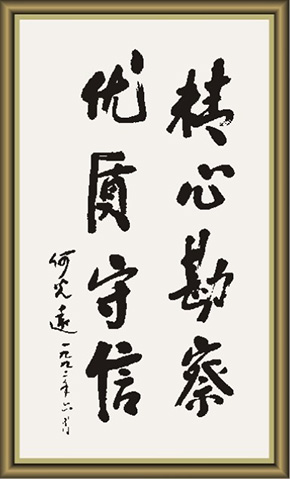 精心勘察
优质守信
何光远
一九九二年六月